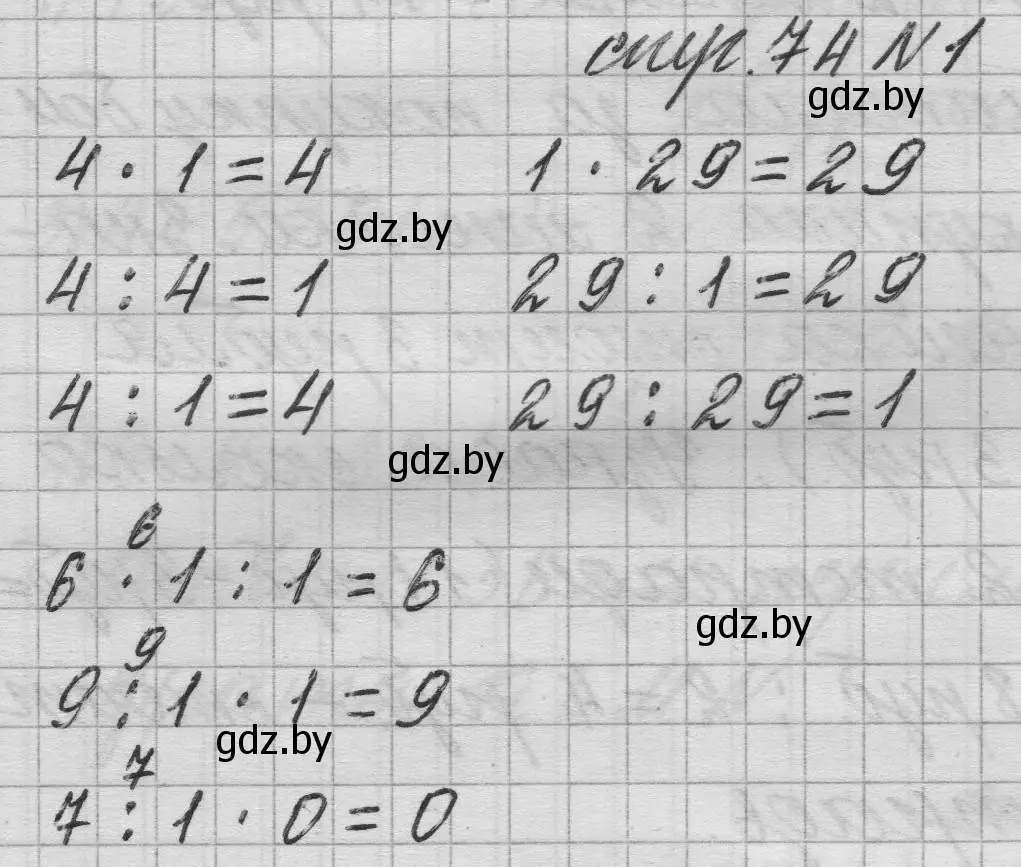 стр. 74 № 1
gdz.by
4 · 1 = 4 1 · 29 = 29
gdz.by
4 : 4 = 1 29 : 1 = 29
4 : 1 = 4 29 : 29 = 1
gdz.by
6
6 · 1 : 1 = 6
gdz.by
9
9 : 1 · 1 = 9
gdz.by
7
7 : 1 · 0 = 0